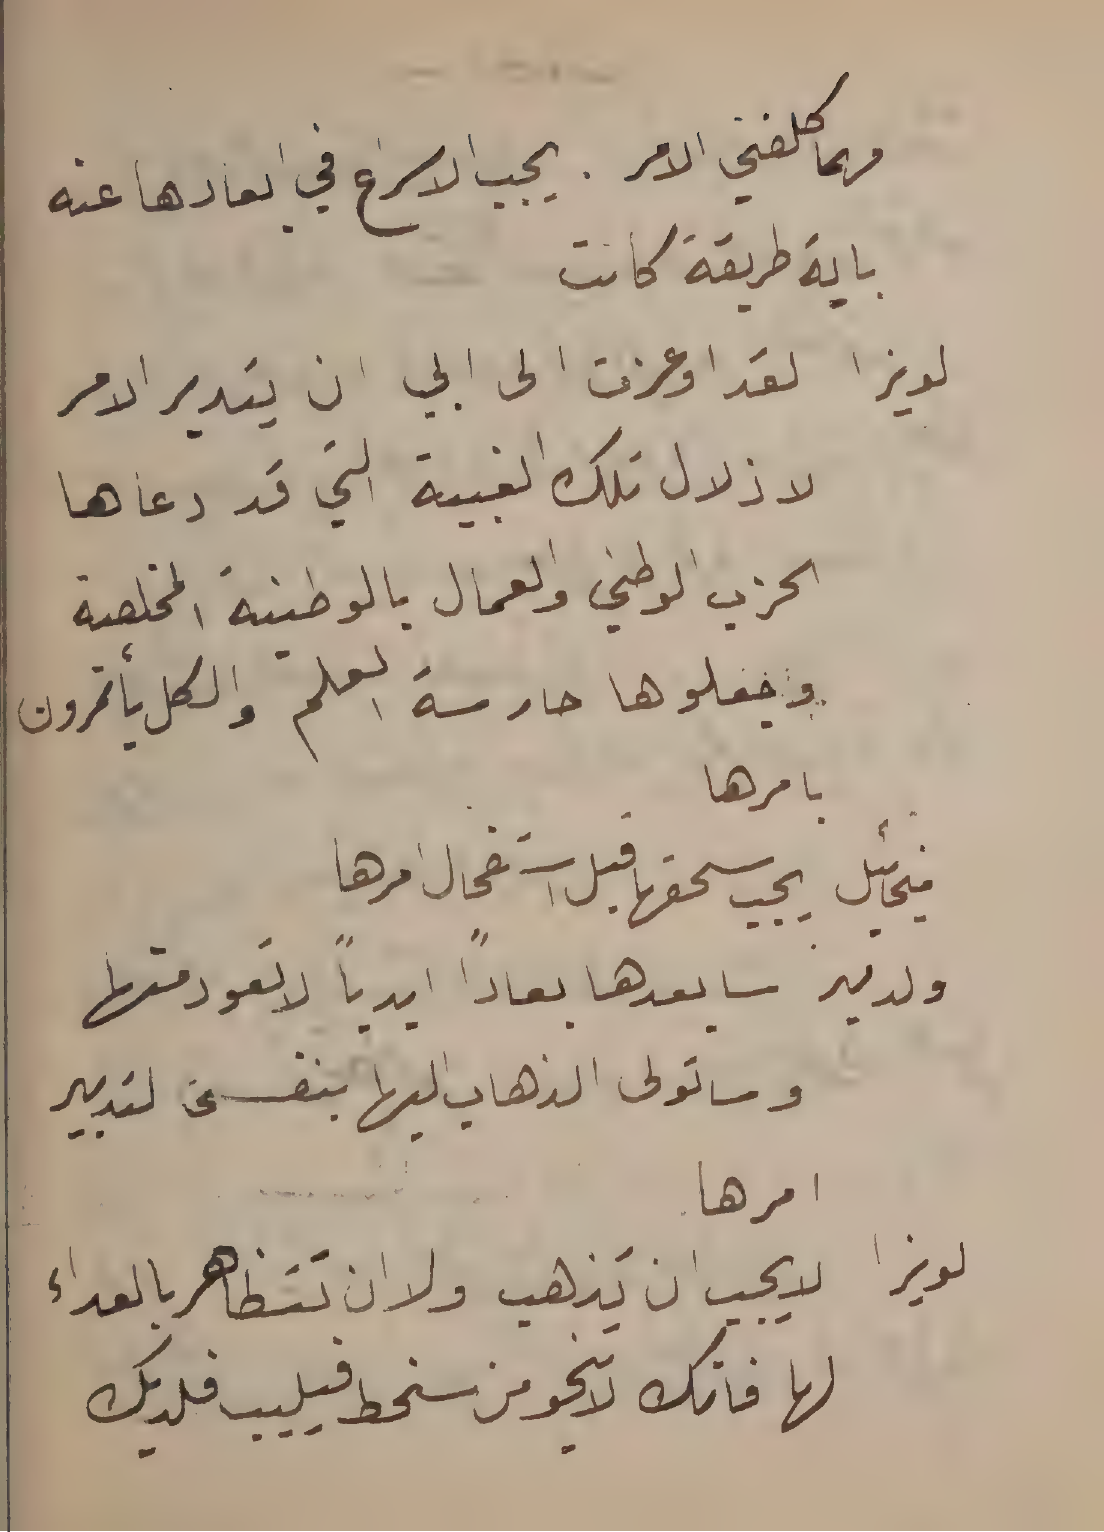 مهما كلفني الامر . يجب الاسراع في ابعادها عنه
باية طريقة كانت
لويزا لقد اوعزت الى ابي ان يتدبر الامر
لاذلال تلك الغبية التي قد دعاها
الحزب الوطني والعمال بالوطنية المخلصة
وجعلوها حارسة العلم والكل يأتمرون
بامرها
ميخائيل يجب سحقها قبل استفحال امرها
ولدمير سابعدها بعاداً ابدياً لا تعود منها
وساتولى الذهاب اليها بنفسي لتدبير
امرها
لويزا لا يجب ان تذهب ولا ان تتظاهر بالعداء
لها فانك لا تنجو من سخط فيليب فلديك